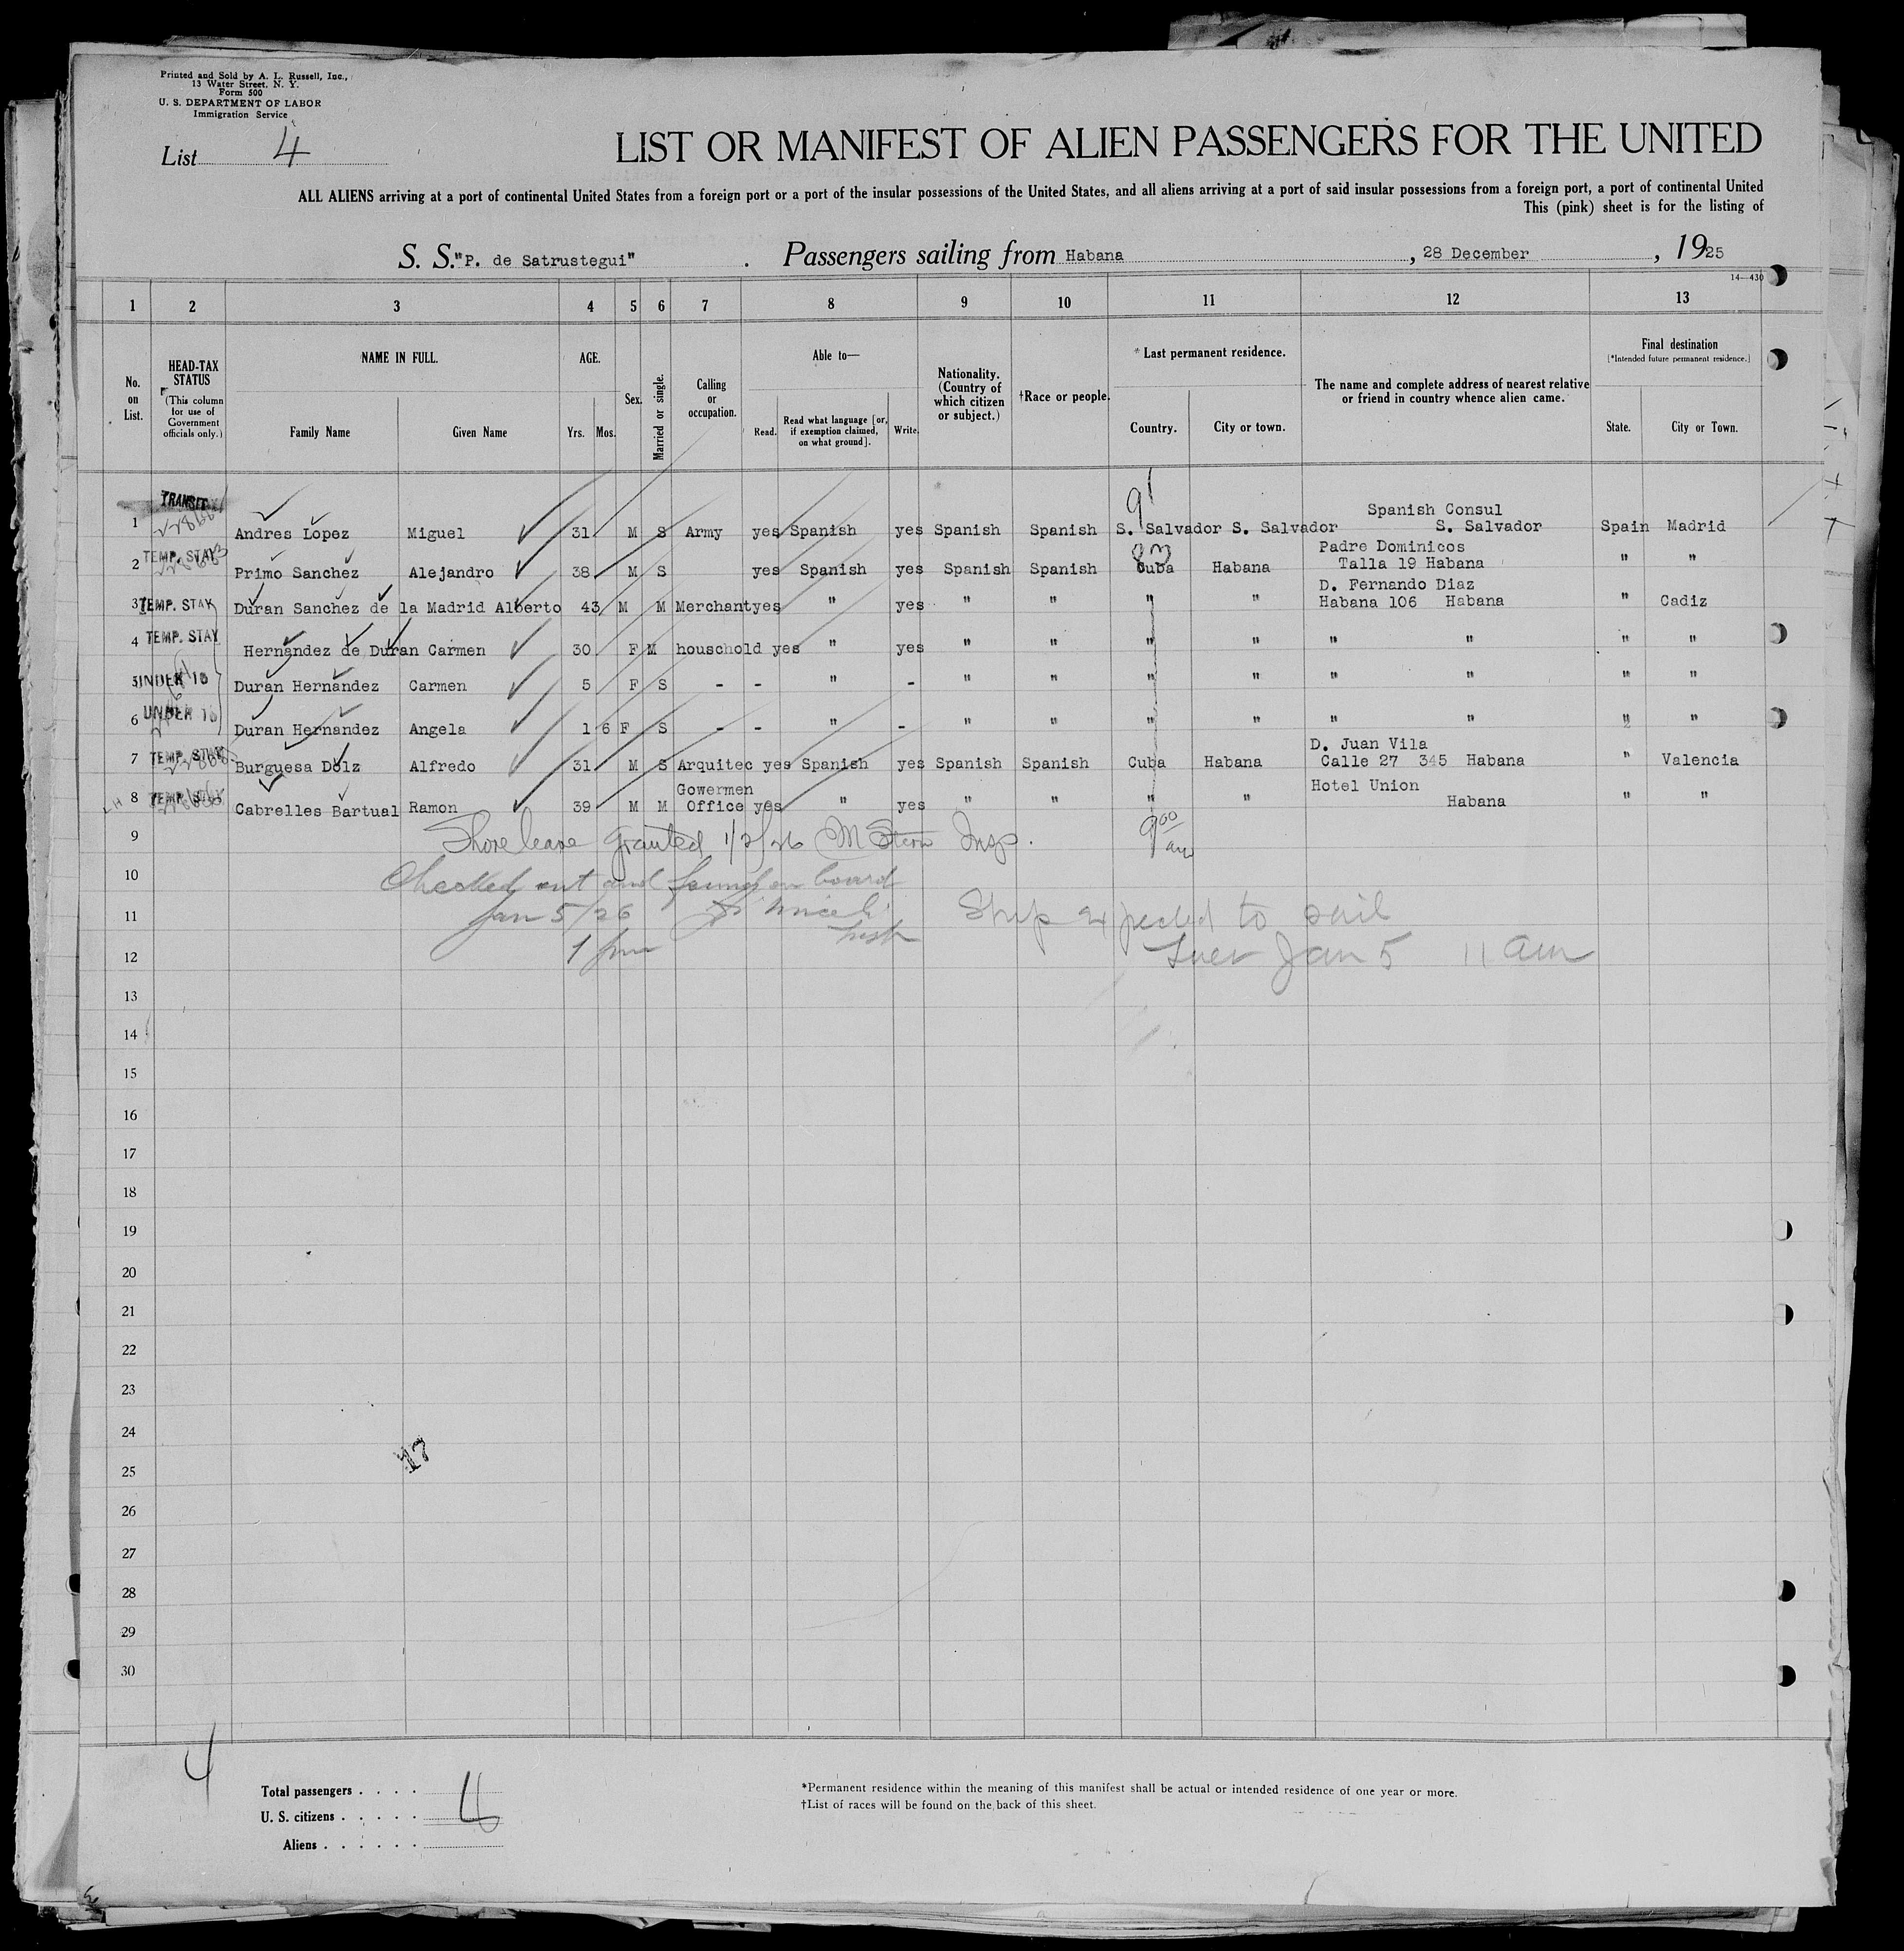 Printed and Sold by A. L. Russell, Inc.,
13 Water Street, N. Y.
Form 500
U. S. DEPARTMENT OF LABOR
Immigration Service
List 4
LIST OR MANIFEST OF ALIEN PASSENGERS FOR THE UNITED
ALL ALIENS arriving at a port of continental United States from a foreign port or a port of the insular possessions of the United States, and all aliens arriving at a port of said insular possessions from a foreign port, a port of continental United
This (pink) sheet is for the listing of
S. S. "P. de Satrustegui". Passengers sailing from Habana, 28 December, 1925
14—430
1 2 3 4 5 6 7 8 9 10 11 12 13
No. on List.
HEAD-TAX STATUS (This column for use of Government officials only.)
NAME IN FULL.
Family Name Given Name
AGE.
Yrs. Mos.
Sex.
Married or single.
Calling or occupation.
Able to—
Read. Read what language [or, if exemption claimed, on what ground]. Write.
Nationality. (Country of which citizen or subject.)
†Race or people.
*Last permanent residence.
Country. City or town.
The name and complete address of nearest relative or friend in country whence alien came.
Final destination
[*Intended future permanent residence.]
State. City or Town.
91
TRANSIT
Spanish Consul
1 Andres Lopez Miguel 31 M S Army yes Spanish yes Spanish Spanish S. Salvador S. Salvador S. Salvador Spain Madrid
83
Padre Dominicos
2 TEMP. STAY Primo Sanchez Alejandro 38 M S yes Spanish yes Spanish Spanish Cuba Habana Talla 19 Habana " "
D. Fernando Diaz
3 TEMP. STAY Duran Sanchez de la Madrid Alberto 43 M M Merchant yes " yes " " " " Habana 106 Habana " Cadiz
4 TEMP. STAY Hernandez de Duran Carmen 30 F M household yes " yes " " " " " " " "
5 UNDER 16 Duran Hernandez Carmen 5 F S - - " - " " " " " " " "
6 UNDER 16 Duran Hernandez Angela 1 6 F S - - " - " " " " " " " "
D. Juan Vila
7 TEMP. STAY Burguesa Dolz Alfredo 31 M S Arquitec yes Spanish yes Spanish Spanish Cuba Habana Calle 27 345 Habana " Valencia
Gowermen Hotel Union
8 TEMP. STAY Cabrelles Bartual Ramon 39 M M Office yes " yes " " " " Habana " "
LH
9 Shore leave granted 1/2/26 M Stern Insp. 9 00 am
10 Checked out and found on board
11 Jan 5/26 Ship expected to sail
12 1 pm Tues Jan 5 11 am
13
14
15
16
17
18
19
20
21
22
23
24
25
26
27
28
29
30
4
Total passengers . . . .
U. S. citizens . . . . .
Aliens . . . . . .
*Permanent residence within the meaning of this manifest shall be actual or intended residence of one year or more.
†List of races will be found on the back of this sheet.